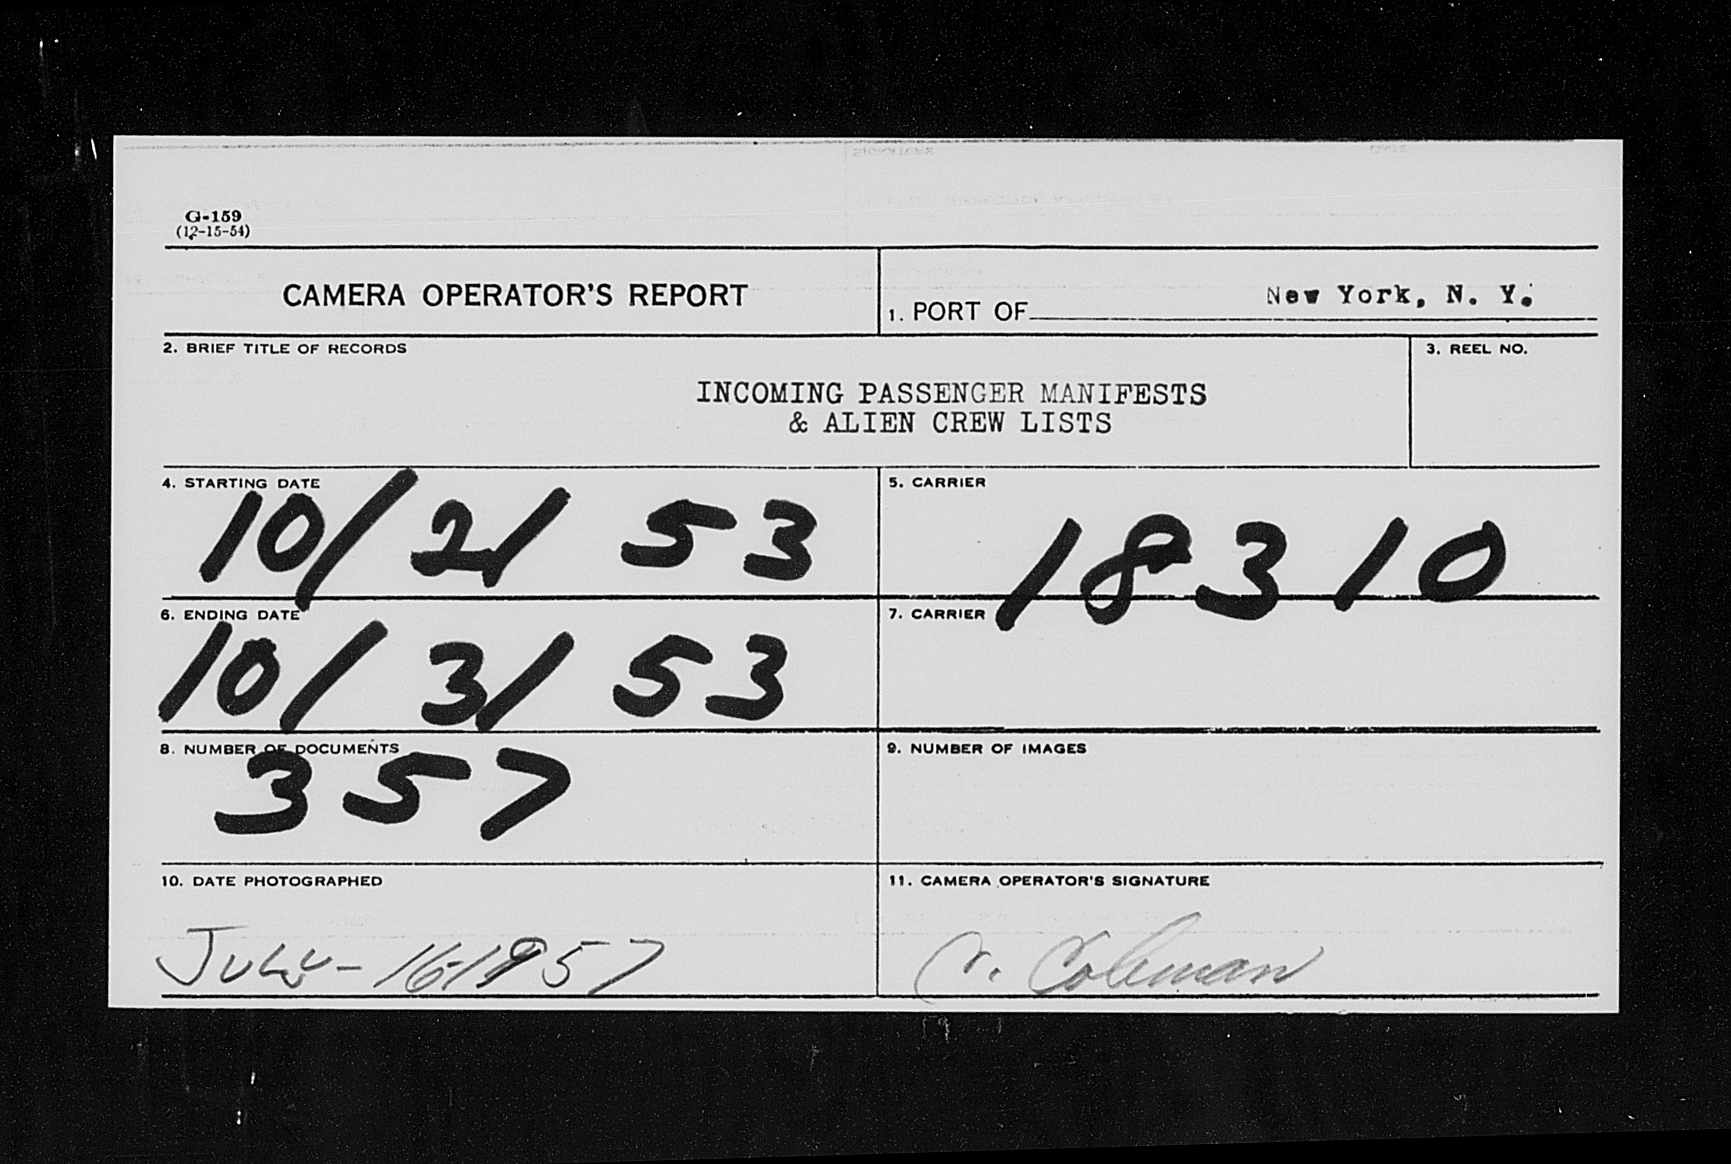 G-159
(12-15-54)
CAMERA OPERATOR'S REPORT
1. PORT OF New York, N. Y.
2. BRIEF TITLE OF RECORDS
3. REEL NO.
INCOMING PASSENGER MANIFESTS
& ALIEN CREW LISTS
4. STARTING DATE
10/2/53
5. CARRIER
18310
6. ENDING DATE
10/3/53
7. CARRIER
8. NUMBER OF DOCUMENTS
357
9. NUMBER OF IMAGES
10. DATE PHOTOGRAPHED
July-16-1957
11. CAMERA OPERATOR'S SIGNATURE
Coleman